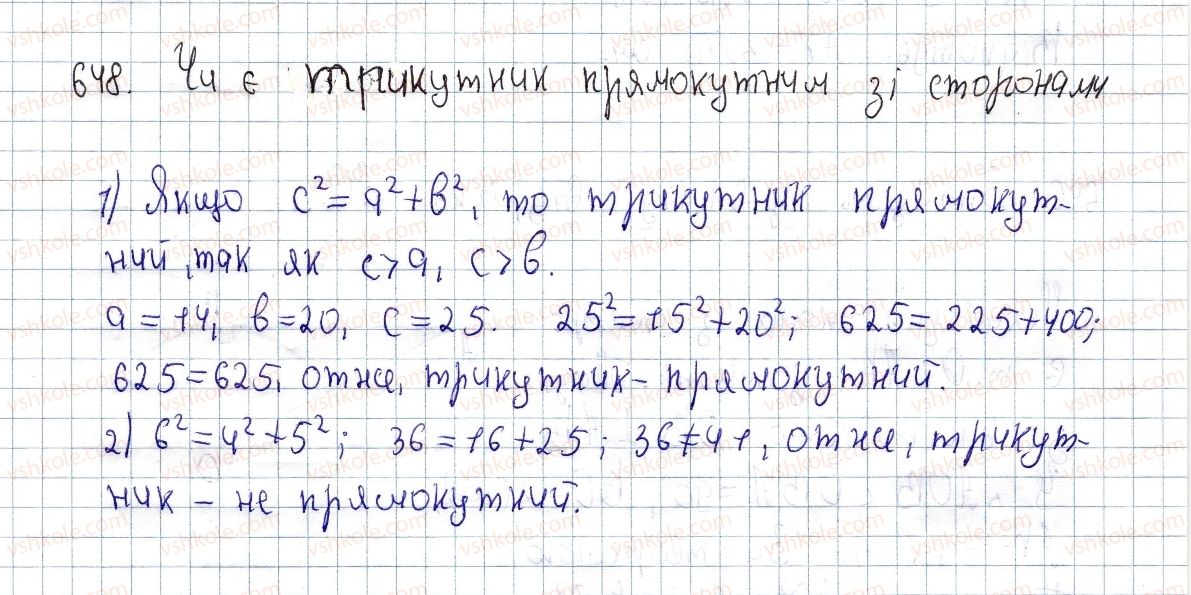 648. Чи є трикутник прямокутним зі сторонами
1) Якщо c² = a² + b², то трикутник прямокут-
ний, так як c > a, c > b.
a = 14, b = 20, c = 25. 25² = 15² + 20²; 625 = 225 + 400;
625 = 625, отже, трикутник - прямокутний.
2) 6² = 4² + 5²; 36 = 16 + 25; 36 ≠ 41, отже, трикут-
ник - не прямокутний.